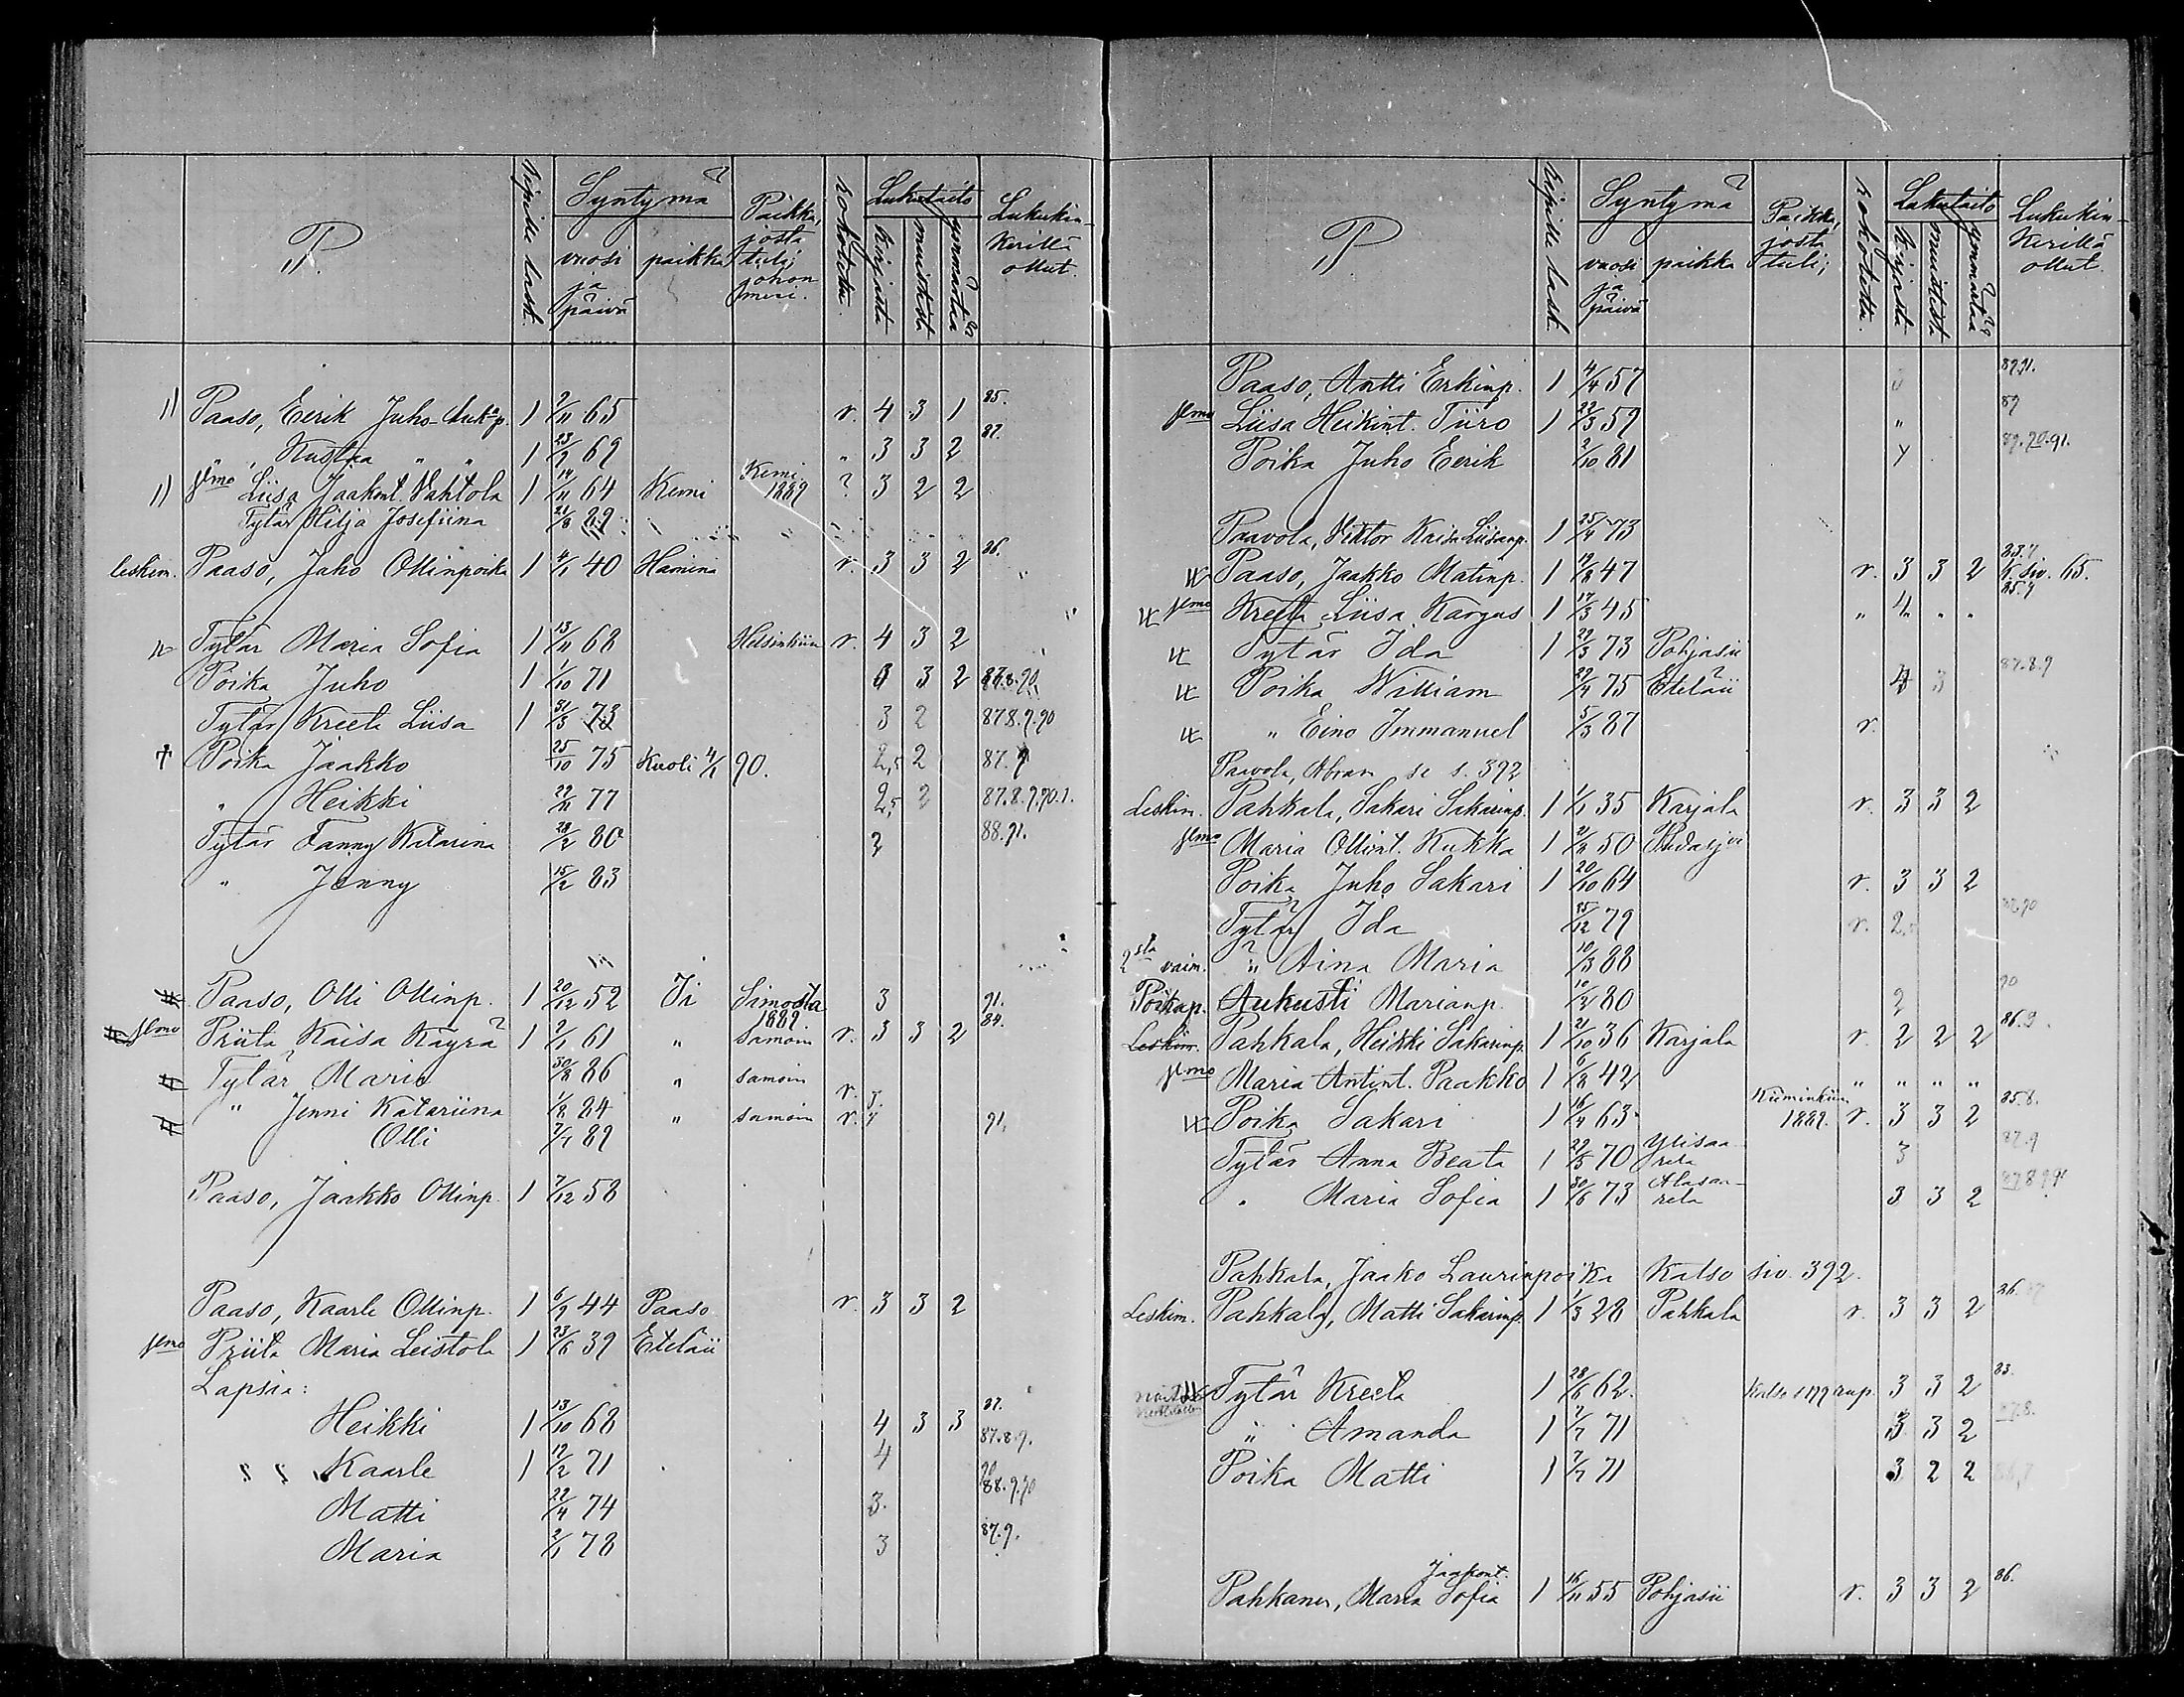 P.
Ripille lask.
Syntymä
vuosi ja päivä
paikka
Paikka, josta tuli; johon meni.
Rokotettu.
Lukutaito
kirjasta
muistista
ymmärtää
Lukukinkerillä ollut.
)) Paaso, Eerik Juho-Auk:p. 1 2/11 65 r. 4 3 1 85.
" Kustaa " " 1 23/9 69 " 3 3 2 87.
)) vmo Liisa Jaakont. Vahtola 1 14/11 64 Kemi Kemi 1889 ? 3 2 2
Tytär Hilja Josefiina 21/8 89
leskim. Paaso, Juho Ollinpoika 1 4/1 40 Hamina r. 3 3 2 86.
Tytär Maria Sofia 1 13/11 68 Helsinkiin r. 4 3 2
Poika Juho 1 1/10 71 3 2
Tytär Kreeta Liisa 1 31/3 73 3 2 87.8.9.90
† Poika Jaakko 25/10 75 Kuoli 4/1 90. 2,5 2 87.9
" Heikki 22/11 77 2,5 2 87.8.9.90.1.
Tytär Fanny Katarina 28/2 80 2 88.91.
" Jenny 15/2 83
Paaso, Olli Ollinp. 1 20/12 52 Ii Simosta 1889. 3 91.
vmo Priita Kaisa Käyrä 1 2/1 61 " samoin r. 3 3 2 84.
Tytär Maria 30/8 86 " samoin r.
" Jenni Katariina 1/8 84 " samoin r. 4 91.
Olli 7/7 89
Paaso, Jaakko Ollinp. 1 7/12 58
Paaso, Kaarle Ollinp. 1 6/9 44 Paaso r. 3 3 2
vmo Priita Maria Leistola 1 23/6 39 Eteläii
Lapsia:
Heikki 1 13/10 68 4 3 3 87.
Kaarle 1 12/2 71 4 87.8.9.
Matti 22/4 74 3. 88.9.90
Maria 2/1 78 3 87.9.
P
Ripille lask.
Syntymä
vuosi ja päivä
paikka
Paikka, josta tuli;
Rokotettu.
Lukutaito
kirjasta
muistista
ymmärtää
Lukukinkerillä ollut.
Paaso, Antti Erkinp. 1 4/4 57 89.91.
vmo Liisa Heikint. Tiiro 1 22/3 59 " 89
Poika Juho Eerik 2/10 81 4 89.90.91.
Paavola, Viktor Kaisa Liisanp. 1 25/4 73
Paaso, Jaakko Matinp. 1 12/8 47 r. 3 3 2 K. siv. 65.
vmo Kreeta Liisa Kargus 1 17/3 45 " 4 " "
Tytär Ida 1 22/3 73 Pohjasii
Poika William 22/4 75 Eteläii 4 3 87.8.9
" Eino Immanuel 5/3 87 r.
Paavola, Abram se s. 392
Leskim. Pahkala, Sakari Sakarinp. 1 1/1 35 Karjala r. 3 3 2
vmo Maria Ollint. Kukka 1 2/8 50 Pudasjär
Poika Juho Sakari 1 20/10 64 r. 3 3 2
Tytär Ida 15/12 79 r. 2,5
2sta vaim. " Aina Maria 10/3 88
Poikap. Aukusti Marianp. 10/2 80 2 90
Leskim. Pahkala, Heikki Sakarinp. 1 21/10 36 Karjala r. 2 2 2 86.9.
vmo Maria Antint. Paakko 1 6/8 42 " " " "
Poika Sakari 1 16/4 63 Kiiminkiin 1889. r. 3 3 2 85.8.
Tytär Anna Beata 1 22/5 70 Ylisaarela 3 87.9
" Maria Sofia 1 30/6 73 Alasaarela 3 3 2
Pahkala, Jaako Laurinpoika Katso siv. 392.
Leskim. Pahkala, Matti Sakarinp. 1 1/3 28 Pahkala r. 3 3 2 86.
Tytär Kreeta 1 28/6 62. 3 3 2 83.
" Amanda 1 7/7 71 3 3 2 87.8.
Poika Matti 1 7/7 71 3 2 2
Pahkanen, Maria Jaakont. Sofia 1 16/11 55 Pohjasii r. 3 3 2 86.